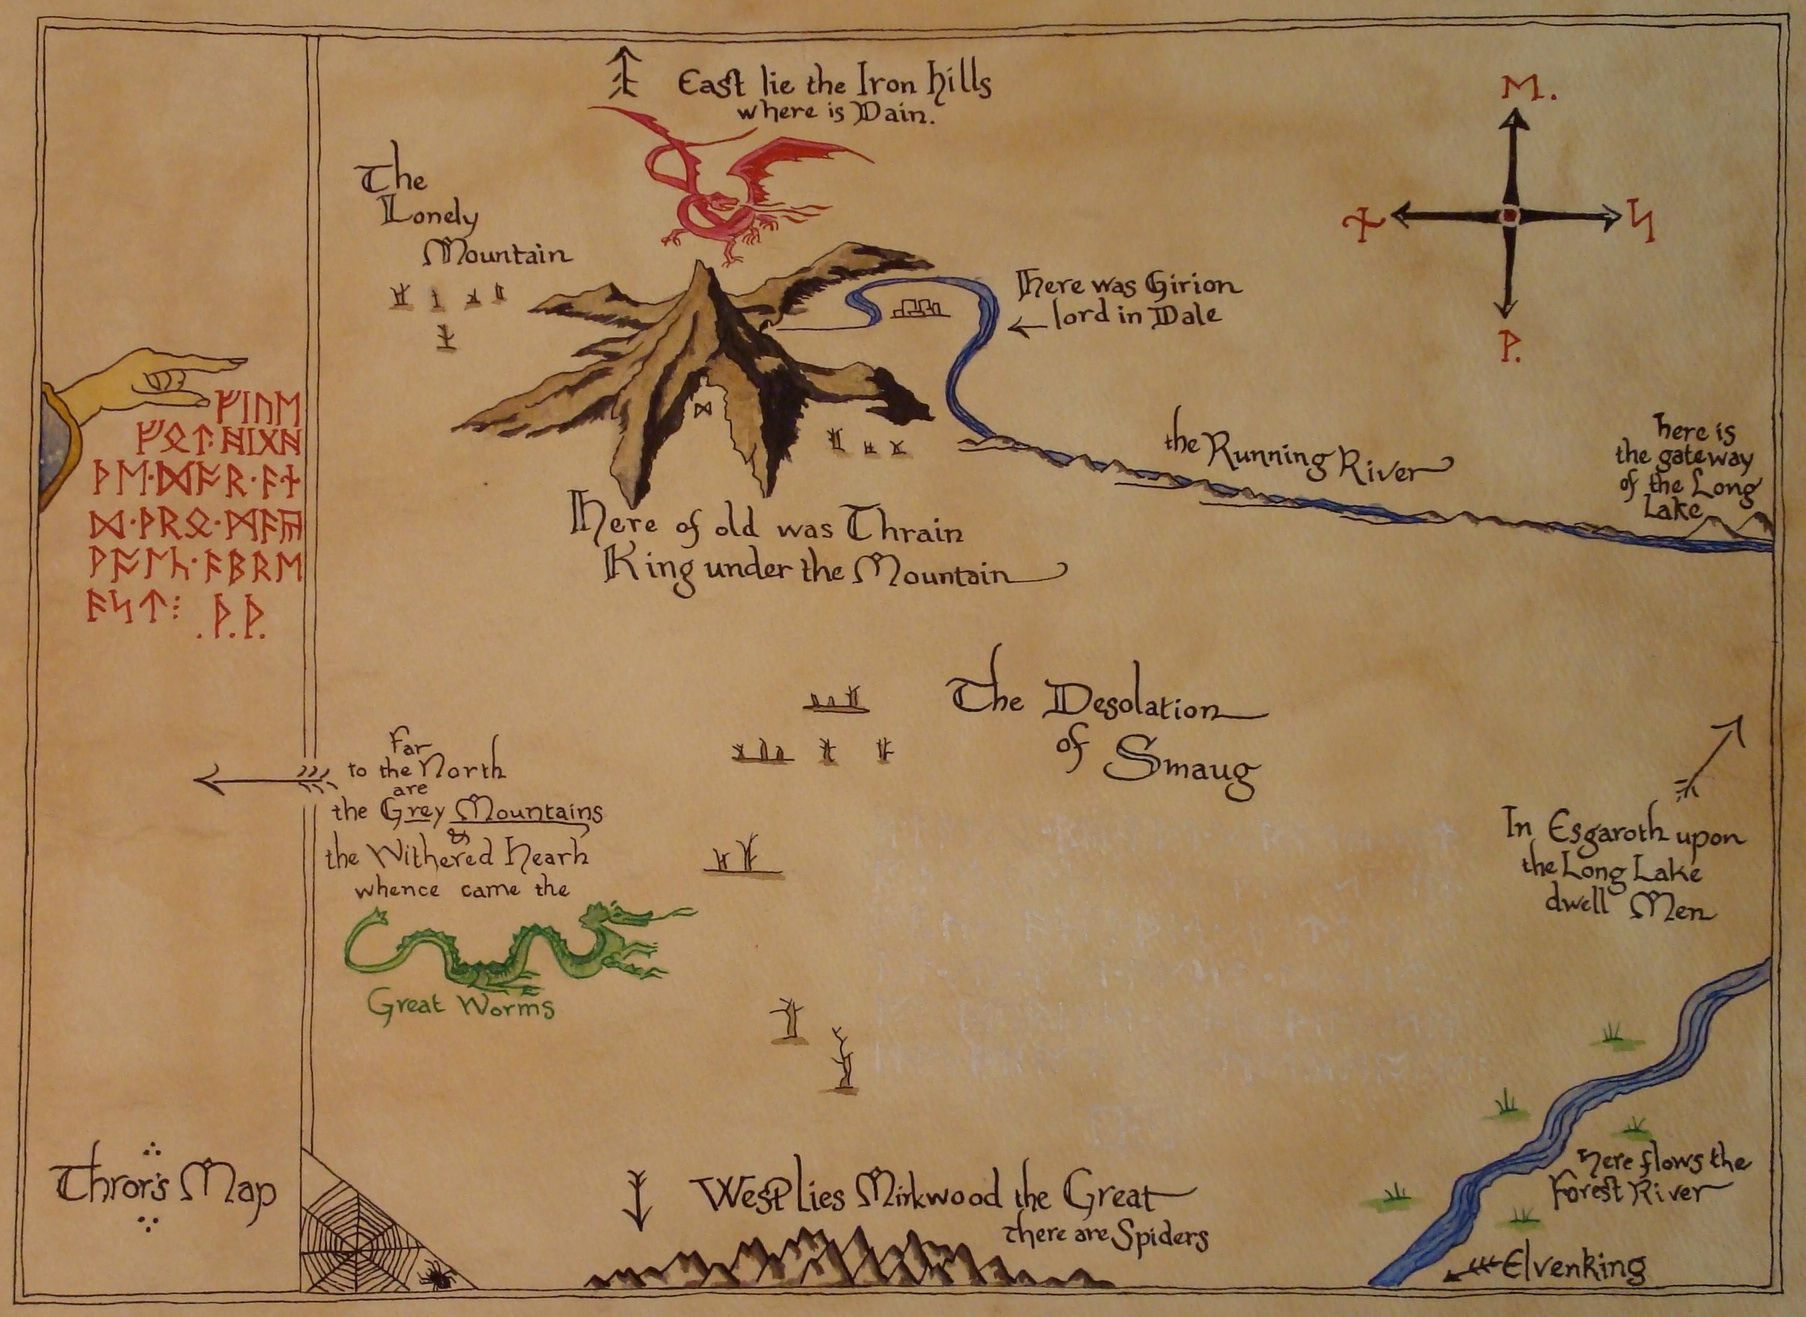 East lie the Iron hills
where is Dain.
The
Lonely
Mountain
ᛖ.
ᚾ
ᛋ
ᚹ.
Here was Girion
lord in Dale
ᚠᛁᚢᛖ
ᚠᛟᛏ:ᚻᛁᚷᚻ
ᚦᛖ·ᛞᚩᚱ·ᚪᚾ
ᛞ·ᚦᚱᛟ·ᛗᚪᚣ
ᚹᚪᛚᚳ·ᚪᛒᚱᛖ
ᚪᛋᛏ⁝ .ᚦ.ᚦ.
ᛞ
the Running River
here is
the gateway
of the Long
Lake
Here of old was Thrain
King under the Mountain
The Desolation
of Smaug
Far
to the North
are
the Grey Mountains
&
the Withered Hearh
whence came the
Great Worms
In Esgaroth upon
the Long Lake
dwell Men
Thror's Map
West lies Mirkwood the Great
there are Spiders
Here flows the
Forest River
Elvenking